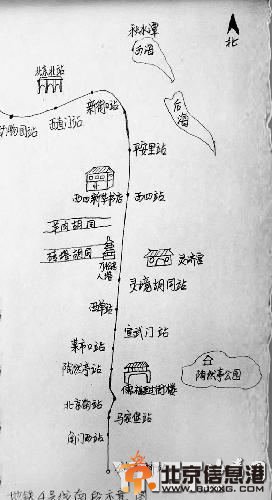 积水潭
西海
北
北京北站
后海
新街口站
西直门站
动物园站
平安里站
西四新华书店
西四站
羊肉胡同
砖塔胡同
万松老
人塔
灵济宫
灵境胡同站
西单站
宣武门站
菜市口站
陶然亭站
陶然亭公园
北京南站
马家堡站
角门西站
地铁4号线南段示意图
北京信息港
WWW.BJXXG.COM